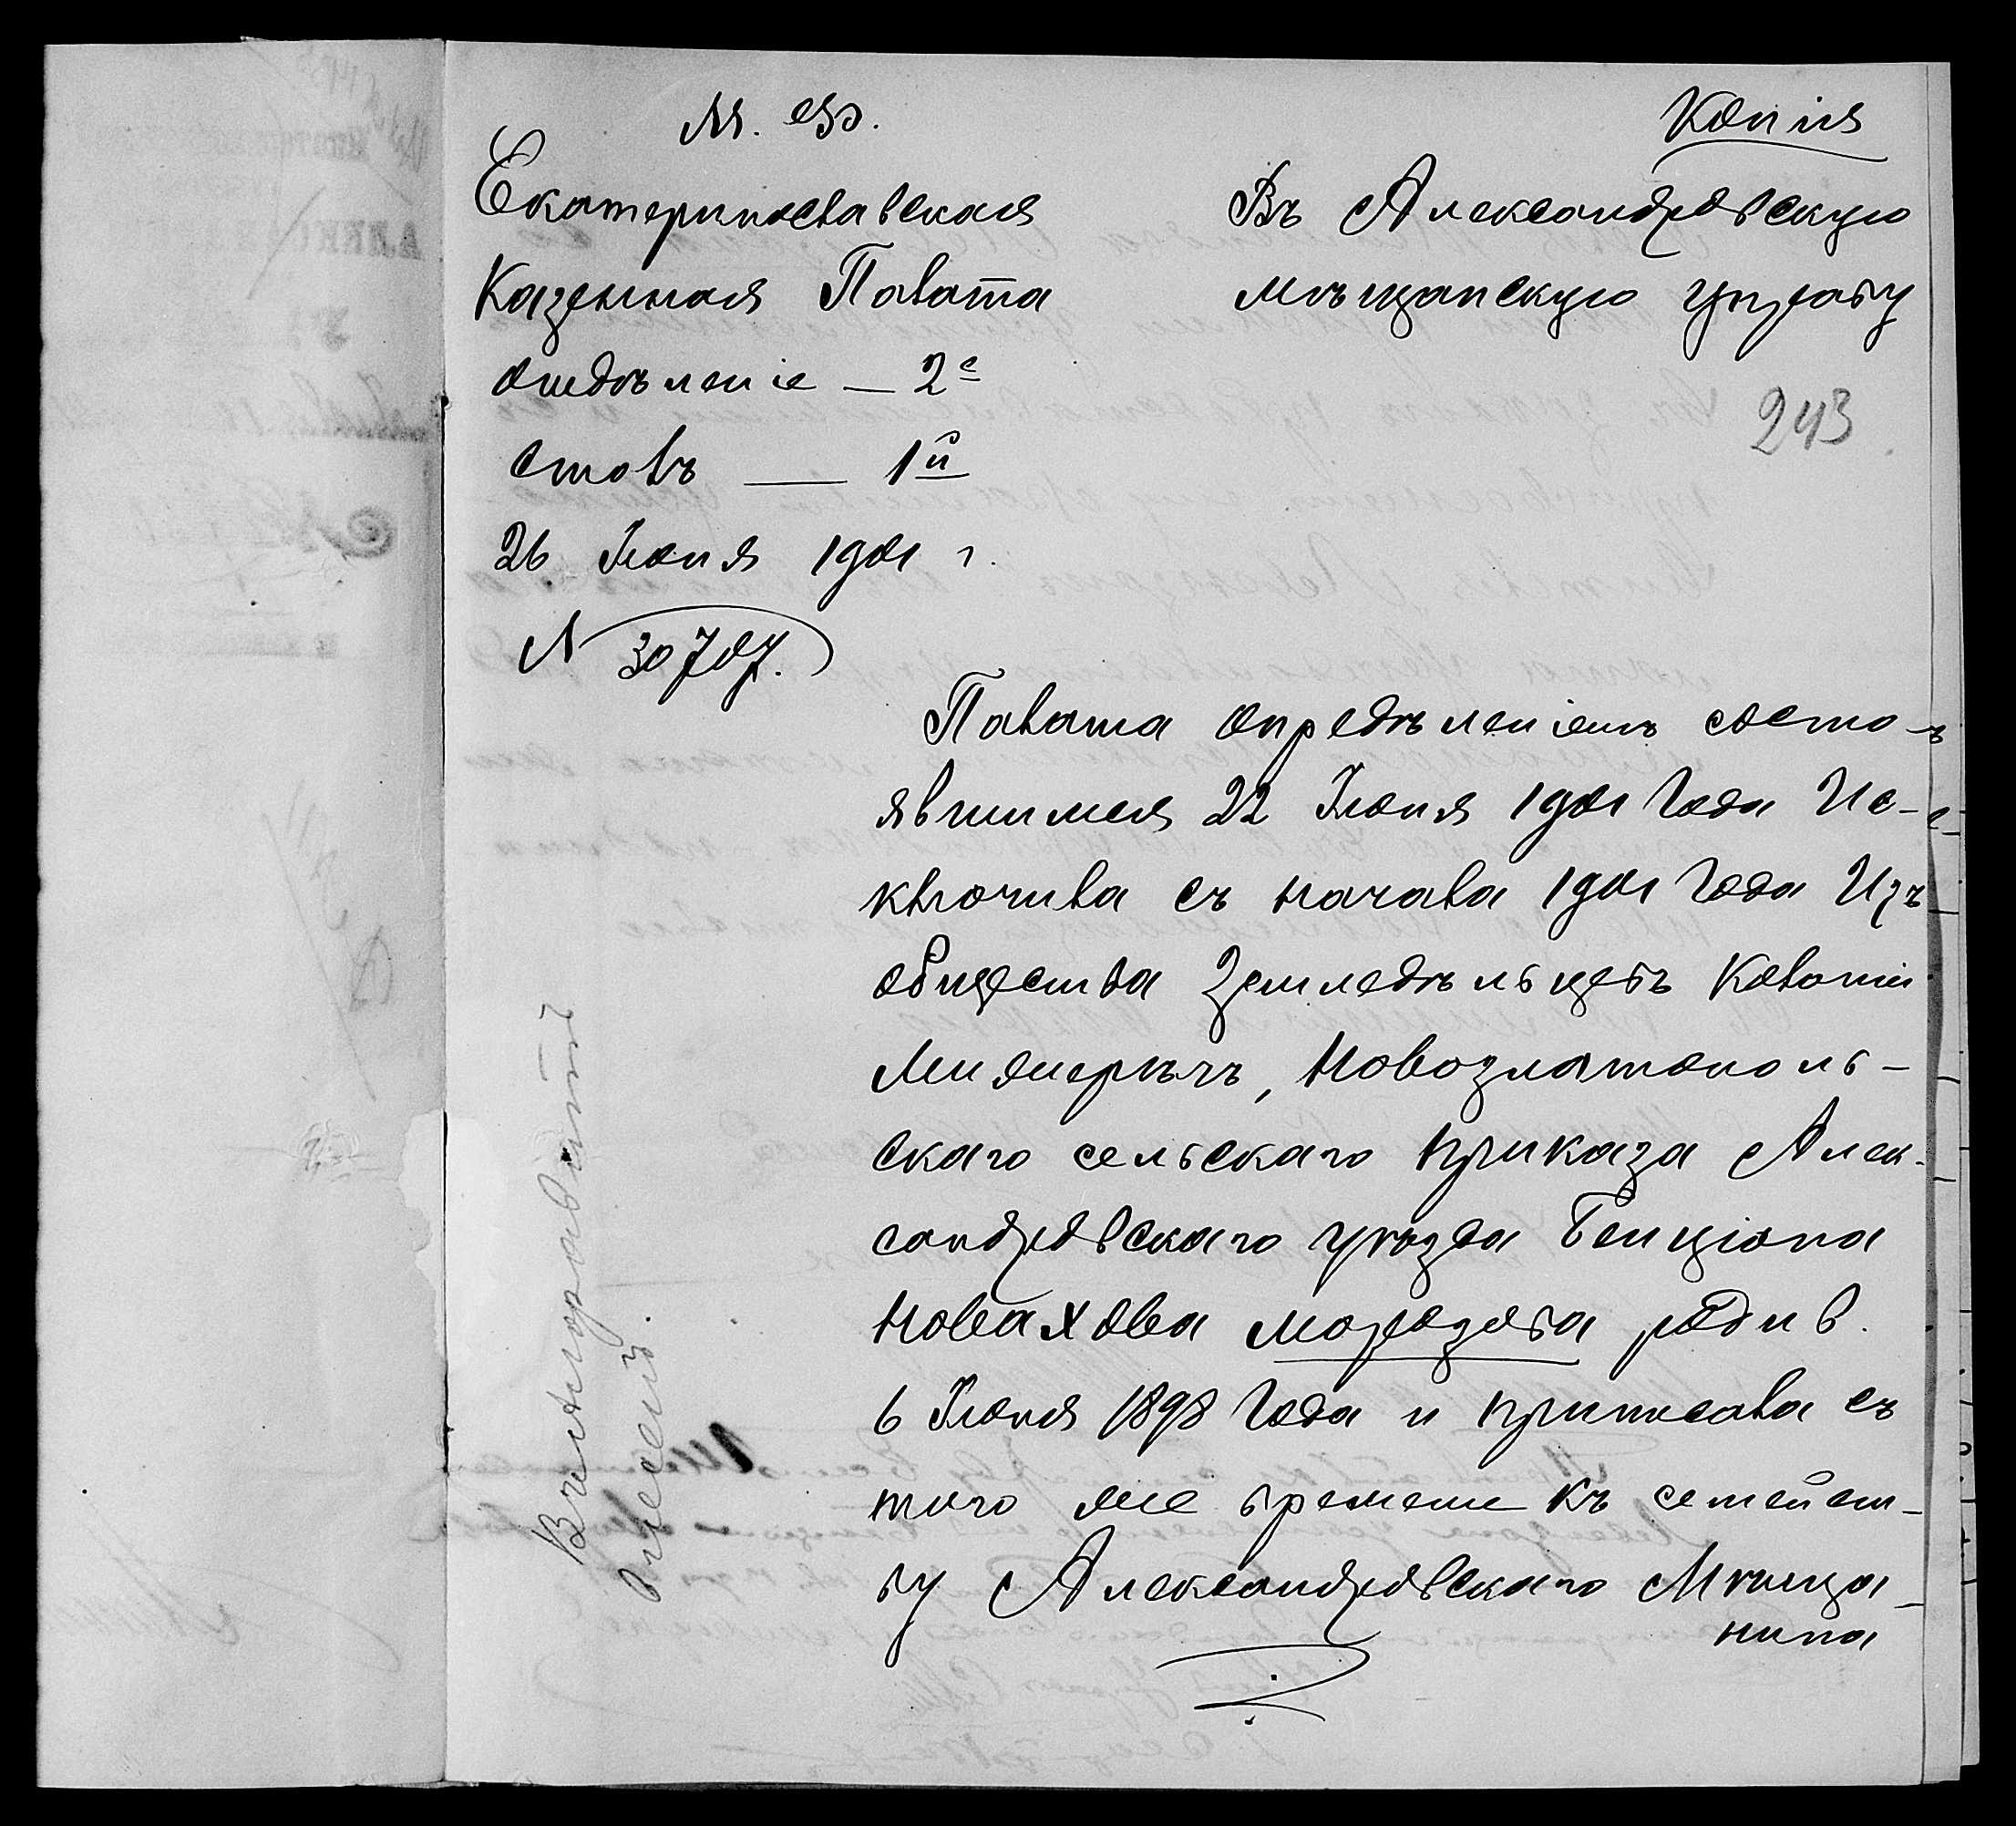 М. ф.
Копія
Екатеринославская
Казенная Палата
отдѣленіе — 2е
столъ — 1й
26 Іюня 1901 г.
№ 30707.
Въ Александровскую
мѣщанскую управу
243
Палата опредѣленіемъ состо-
явшимся 22 Іюня 1901 года Ис-
ключила съ начала 1901 года Изъ
общества Земледѣльцевъ Колоніи
Межирѣчъ, Новозлатополь-
скаго сельскаго приказа Алек-
сандровскаго уѣзда Бенціона
Новахова Морозова родив.
6 Іюня 1898 года и приписала съ
того же времени къ семейст-
ву Александровскаго Мѣща-
нина